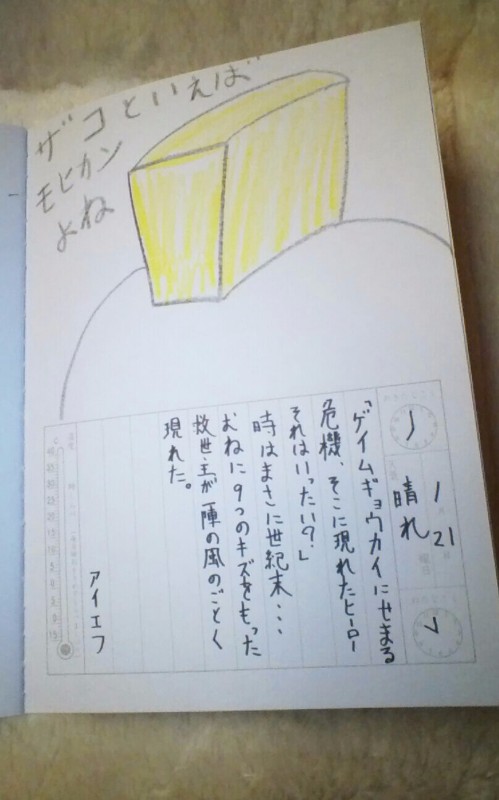 ザコといえば
モヒカン
よね
1
21
晴れ
「ゲイムギョウカイにせまる
危機、そこに現れたヒーロー
それはいったい?」
時はまさに世紀末・・・
おねに9つのキズをもった
救世主が一陣の風のごとく
現れた。
アイエフ